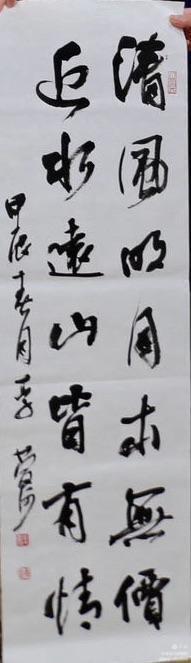 清風明月本無價
近水遠山皆有情
甲辰春月李